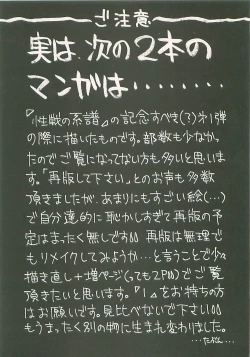 ご注意
実は、次の2本の
マンガは‥‥‥‥
『性戦の系譜』の記念すべき(?)第1弾
の際に描いたものです。部数も少なか。
たのでご覧になってない方も多いと思いま
す。「再版して下さい」とのお声も多数
頂きましたが、あまりにもすごい絵(…)
で自分達的に恥かしすぎて再版の予
定はまったく無しです
再版は無理で
も、リメイクしてみようか…と言うことで少々
描き直し+増ページ(っても2P)でご覧
頂きたいと思います。『1』をお持ちの方
はお願いです。見比べないで下さい
もうまったく別の物に生まれ変わりました。
…たぶん…